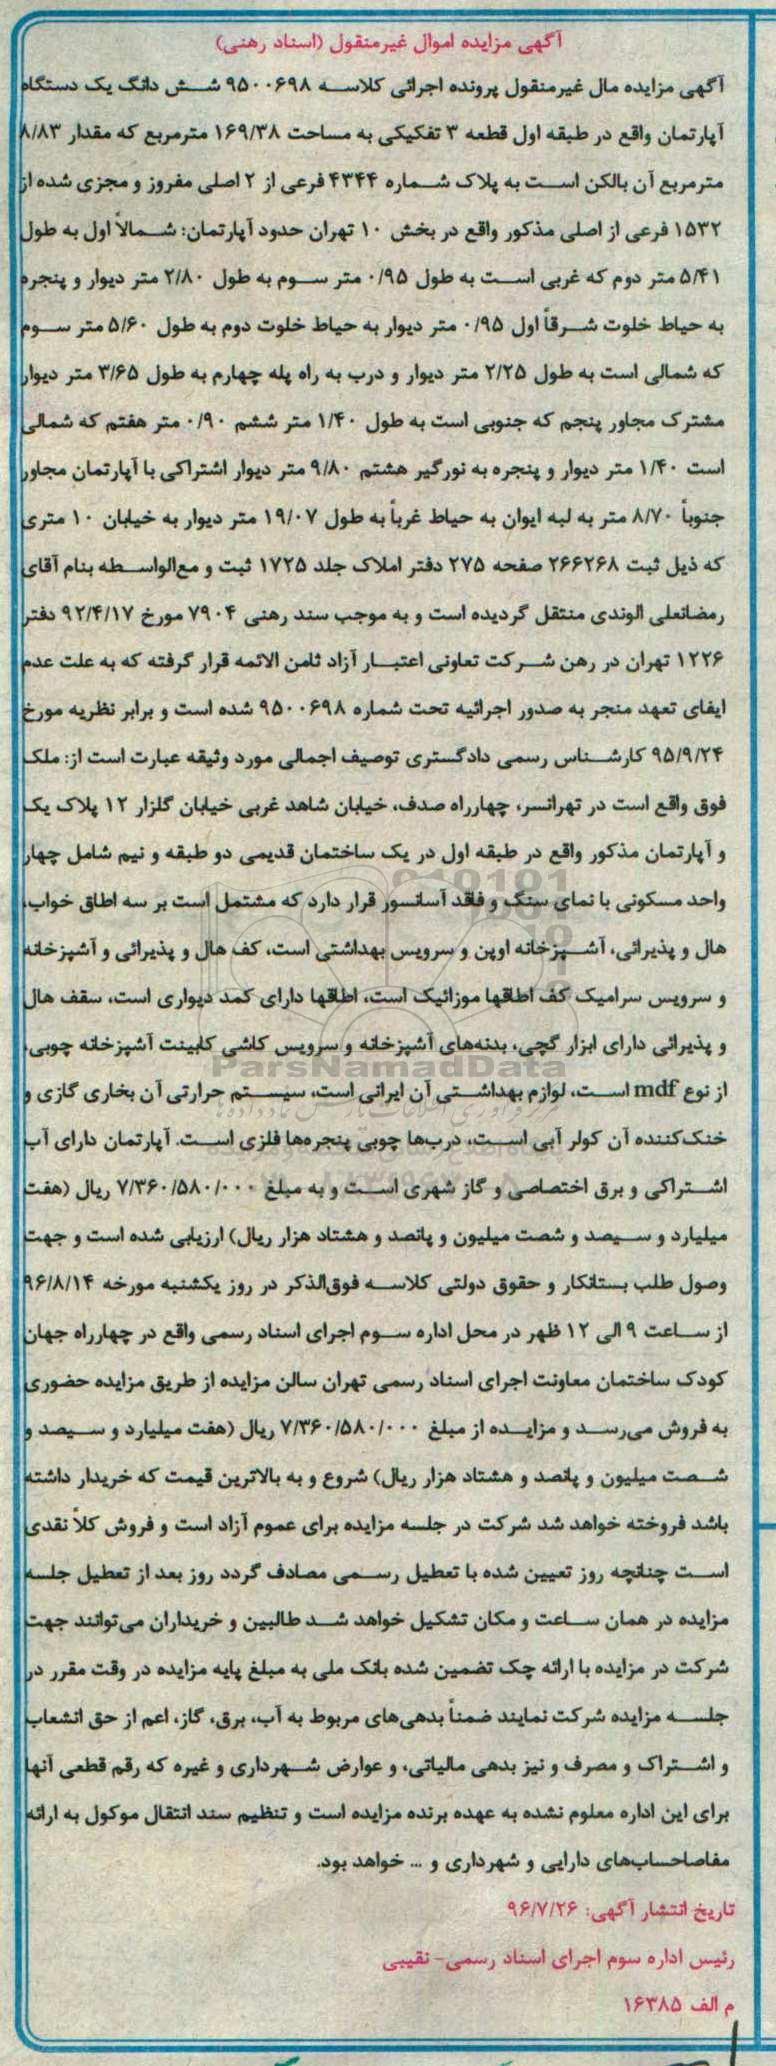 آگهی مزایده اموال غیرمنقول (اسناد رهنی)
آگهی مزایده مال غیرمنقول پرونده اجرائی کلاسه ۹۵۰۰۶۹۸ شش دانگ یک دستگاه
آپارتمان واقع در طبقه اول قطعه ۳ تفکیکی به مساحت ۱۶۹/۳۸ مترمربع که مقدار ۸/۸۳
مترمربع آن بالکن است به پلاک شماره ۴۳۴۴ فرعی از ۲ اصلی مفروز و مجزی شده از
۱۵۳۲ فرعی از اصلی مذکور واقع در بخش ۱۰ تهران حدود آپارتمان: شمالاً اول به طول
۵/۴۱ متر دوم که غربی است به طول ۰/۹۵ متر سوم به طول ۲/۸۰ متر دیوار و پنجره
به حیاط خلوت شرقاً اول ۰/۹۵ متر دیوار به حیاط خلوت دوم به طول ۵/۶۰ متر سوم
که شمالی است به طول ۲/۲۵ متر دیوار و درب به راه پله چهارم به طول ۳/۶۵ متر دیوار
مشترک مجاور پنجم که جنوبی است به طول ۱/۴۰ متر ششم ۰/۹۰ متر هفتم که شمالی
است ۱/۴۰ متر دیوار و پنجره به نورگیر هشتم ۹/۸۰ متر دیوار اشتراکی با آپارتمان مجاور
جنوباً ۸/۷۰ متر به لبه ایوان به حیاط غرباً به طول ۱۹/۰۷ متر دیوار به خیابان ۱۰ متری
که ذیل ثبت ۲۶۶۲۶۸ صفحه ۲۷۵ دفتر املاک جلد ۱۷۲۵ ثبت و مع‌الواسطه بنام آقای
رمضانعلی الوندی منتقل گردیده است و به موجب سند رهنی ۷۹۰۴ مورخ ۹۲/۴/۱۷ دفتر
۱۲۲۶ تهران در رهن شرکت تعاونی اعتبار آزاد ثامن الائمه قرار گرفته که به علت عدم
ایفای تعهد منجر به صدور اجرائیه تحت شماره ۹۵۰۰۶۹۸ شده است و برابر نظریه مورخ
۹۵/۹/۲۴ کارشناس رسمی دادگستری توصیف اجمالی مورد وثیقه عبارت است از: ملک
فوق واقع است در تهرانسر، چهارراه صدف، خیابان شاهد غربی خیابان گلزار ۱۲ پلاک یک
و آپارتمان مذکور واقع در طبقه اول در یک ساختمان قدیمی دو طبقه و نیم شامل چهار
واحد مسکونی با نمای سنگ و فاقد آسانسور قرار دارد که مشتمل است بر سه اطاق خواب،
هال و پذیرائی، آشپزخانه اوپن و سرویس بهداشتی است، کف هال و پذیرائی و آشپزخانه
و سرویس سرامیک کف اطاقها موزائیک است، اطاقها دارای کمد دیواری است، سقف هال
و پذیرائی دارای ابزار گچی، بدنه‌های آشپزخانه و سرویس کاشی کابینت آشپزخانه چوبی،
ParsNamadData
از نوع mdf است، لوازم بهداشتی آن ایرانی است، سیستم حرارتی آن بخاری گازی و
خنک‌کننده آن کولر آبی است، درب‌ها چوبی پنجره‌ها فلزی است. آپارتمان دارای آب
اشتراکی و برق اختصاصی و گاز شهری است و به مبلغ ۷/۳۶۰/۵۸۰/۰۰۰ ریال (هفت
میلیارد و سیصد و شصت میلیون و پانصد و هشتاد هزار ریال) ارزیابی شده است و جهت
وصول طلب بستانکار و حقوق دولتی کلاسه فوق‌الذکر در روز یکشنبه مورخه ۹۶/۸/۱۴
از ساعت ۹ الی ۱۲ ظهر در محل اداره سوم اجرای اسناد رسمی واقع در چهارراه جهان
کودک ساختمان معاونت اجرای اسناد رسمی تهران سالن مزایده از طریق مزایده حضوری
به فروش می‌رسد و مزایده از مبلغ ۷/۳۶۰/۵۸۰/۰۰۰ ریال (هفت میلیارد و سیصد و
شصت میلیون و پانصد و هشتاد هزار ریال) شروع و به بالاترین قیمت که خریدار داشته
باشد فروخته خواهد شد شرکت در جلسه مزایده برای عموم آزاد است و فروش کلاً نقدی
است چنانچه روز تعیین شده با تعطیل رسمی مصادف گردد روز بعد از تعطیل جلسه
مزایده در همان ساعت و مکان تشکیل خواهد شد طالبین و خریداران می‌توانند جهت
شرکت در مزایده با ارائه چک تضمین شده بانک ملی به مبلغ پایه مزایده در وقت مقرر در
جلسه مزایده شرکت نمایند ضمناً بدهی‌های مربوط به آب، برق، گاز، اعم از حق انشعاب
و اشتراک و مصرف و نیز بدهی مالیاتی، و عوارض شهرداری و غیره که رقم قطعی آنها
برای این اداره معلوم نشده به عهده برنده مزایده است و تنظیم سند انتقال موکول به ارائه
مفاصاحساب‌های دارایی و شهرداری و ... خواهد بود.
تاریخ انتشار آگهی: ۹۶/۷/۲۶
رئیس اداره سوم اجرای اسناد رسمی- نقیبی
م الف ۱۶۳۸۵